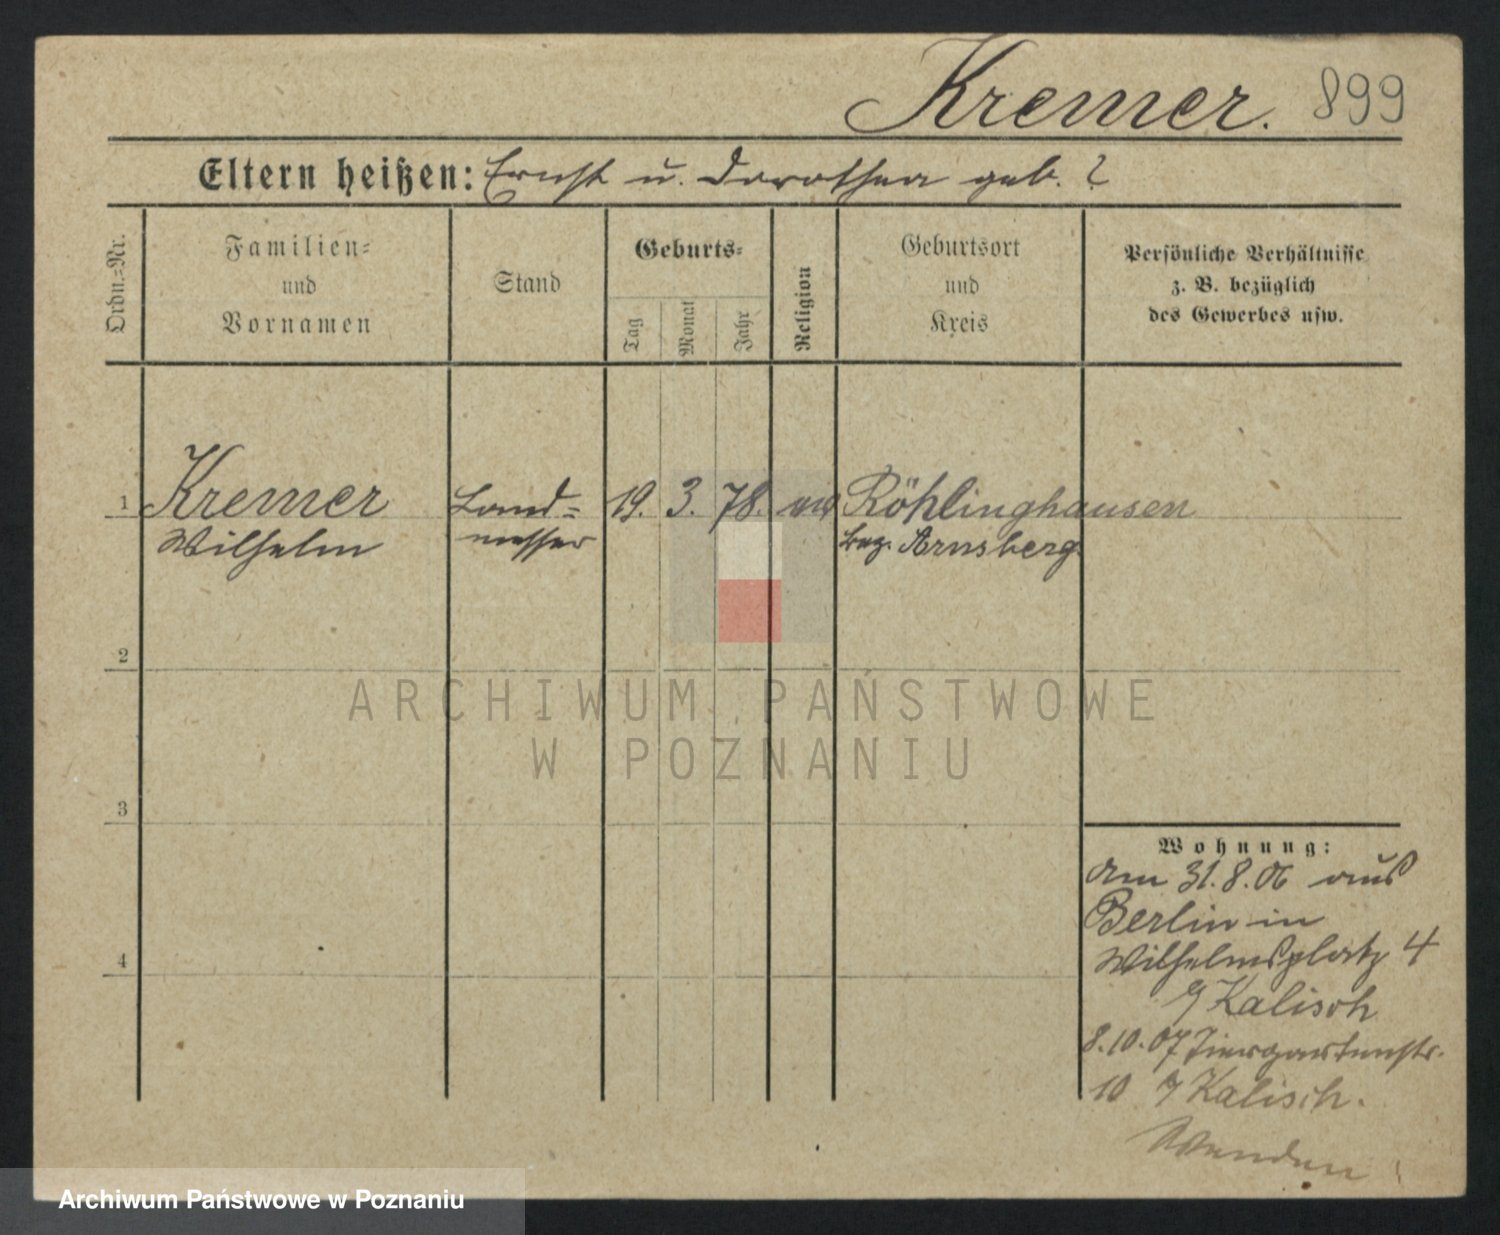 Kremer. 899
Eltern heißen: Ernst u. Dorothea geb. ?
Ordn.=Nr.
Familien=
und
Vornamen
Stand
Geburts=
Tag
Monat
Jahr
Religion
Geburtsort
und
Kreis
Persönliche Verhältnisse
z. B. bezüglich
des Gewerbes usw.
1 Kremer Land= 19. 3. 78. Röhlinghausen
Wilhelm messer Bez. Arnsberg
2
3
4
ARCHIWUM PAŃSTWOWE
W POZNANIU
Wohnung:
Am 31.8.06 aus
Berlin in
Wilhelmsplatz 4
b/ Kalisch
8.10.07 Tiergartenstr.
10 b/ Kalisch.
Wenden!
Archiwum Państwowe w Poznaniu